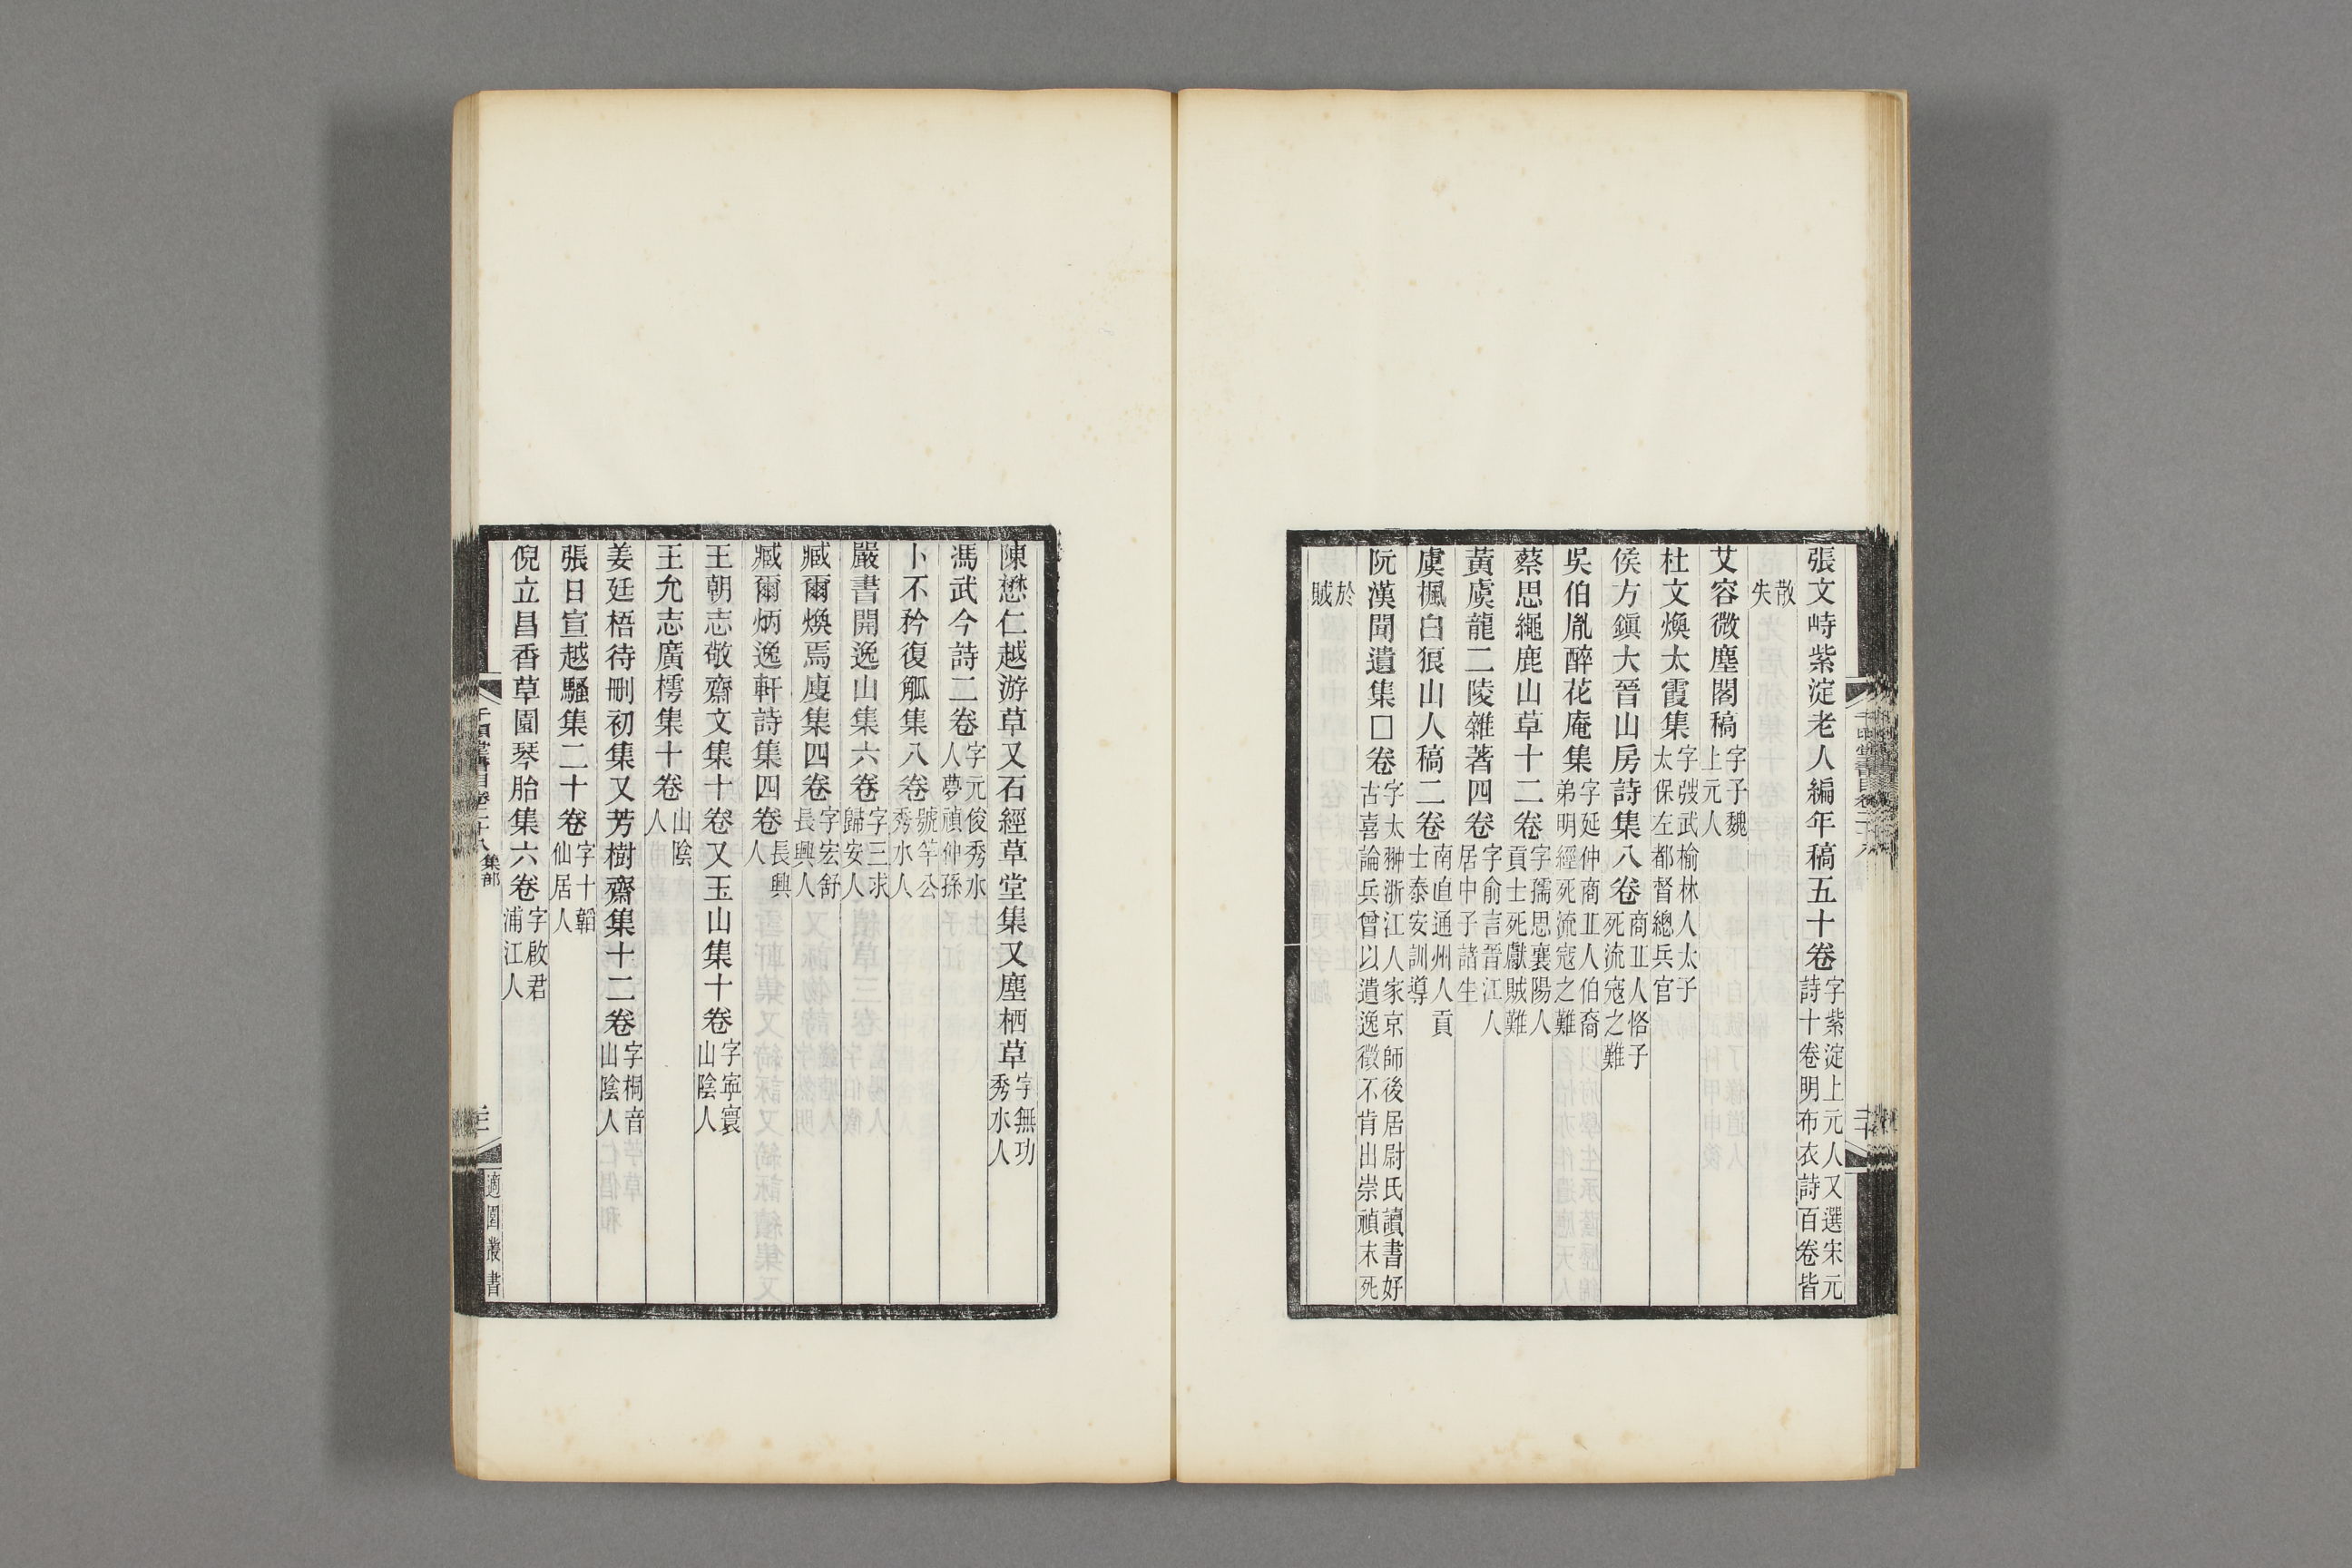 張文峙紫淀老人編年稿五十卷字紫淀上元人又選宋元詩十卷明布衣詩百卷皆
散失
艾容微塵閣稿字子魏上元人
杜文煥太霞集字弢武榆林人太子太保左都督總兵官
侯方鎮大晉山房詩集八卷商丘人恪子死流寇之難
吳伯胤醉花庵集字延仲商丘人伯裔弟明經死流寇之難
蔡思繩鹿山草十二卷字孺思襄陽人貢士死獻賊難
黃虞龍二陵雜著四卷字俞言晉江人居中子諸生
虞楓白狼山人稿二卷南直通州人貢士泰安訓導
阮漢聞遺集□卷字太翀浙江人家京師後居尉氏讀書好古喜論兵曾以遺逸徵不肯出崇禎末死
於賊
千頃堂書目卷二十八
二十
陳懋仁越游草又石經草堂集又塵栖草字無功秀水人
馮武今詩二卷字元俊秀水人夢禎仲孫
卜不矜復觚集八卷號竿公秀水人
嚴書開逸山集六卷字三求歸安人
臧爾煥焉廋集四卷字宏舒長興人
臧爾炳逸軒詩集四卷長興人
王朝志敬齋文集十卷又玉山集十卷字寧寰山陰人
王允志廣樗集十卷山陰人
姜廷梧待刪初集又芳樹齋集十二卷字桐音山陰人
張日宣越騷集二十卷字十韜仙居人
倪立昌香草園琴胎集六卷字啟君浦江人
千頃堂書目卷二十八 集部
適園叢書